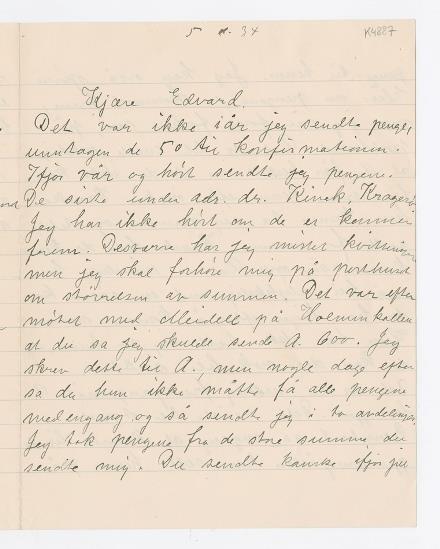 5 . 34
K4887
Kjære Edvard.
Det var ikke iår jeg sendte penger,
unntagen de 50 til konfirmationen.
Ifjor vår og høst sendte jeg pengene.
De siste under adr. dr. Kinck, Kragerø
Jeg har ikke hørt om de er kommet
frem. Desværre har jeg mistet kvitteringen
men jeg skal forhøre mig på posthuset
om størrelsen av summen. Det var efter
møtet med Meidell på Holmenkollen
at du sa jeg skulde sende A. 600. Jeg
skrev dette til A., men nogle dage efter
sa du hun ikke måtte få alle pengene
med engang og så sendte jeg i to avdelinger.
Jeg tok pengene fra de store summe du
sendte mig. Du sendte kanske ifjor juli